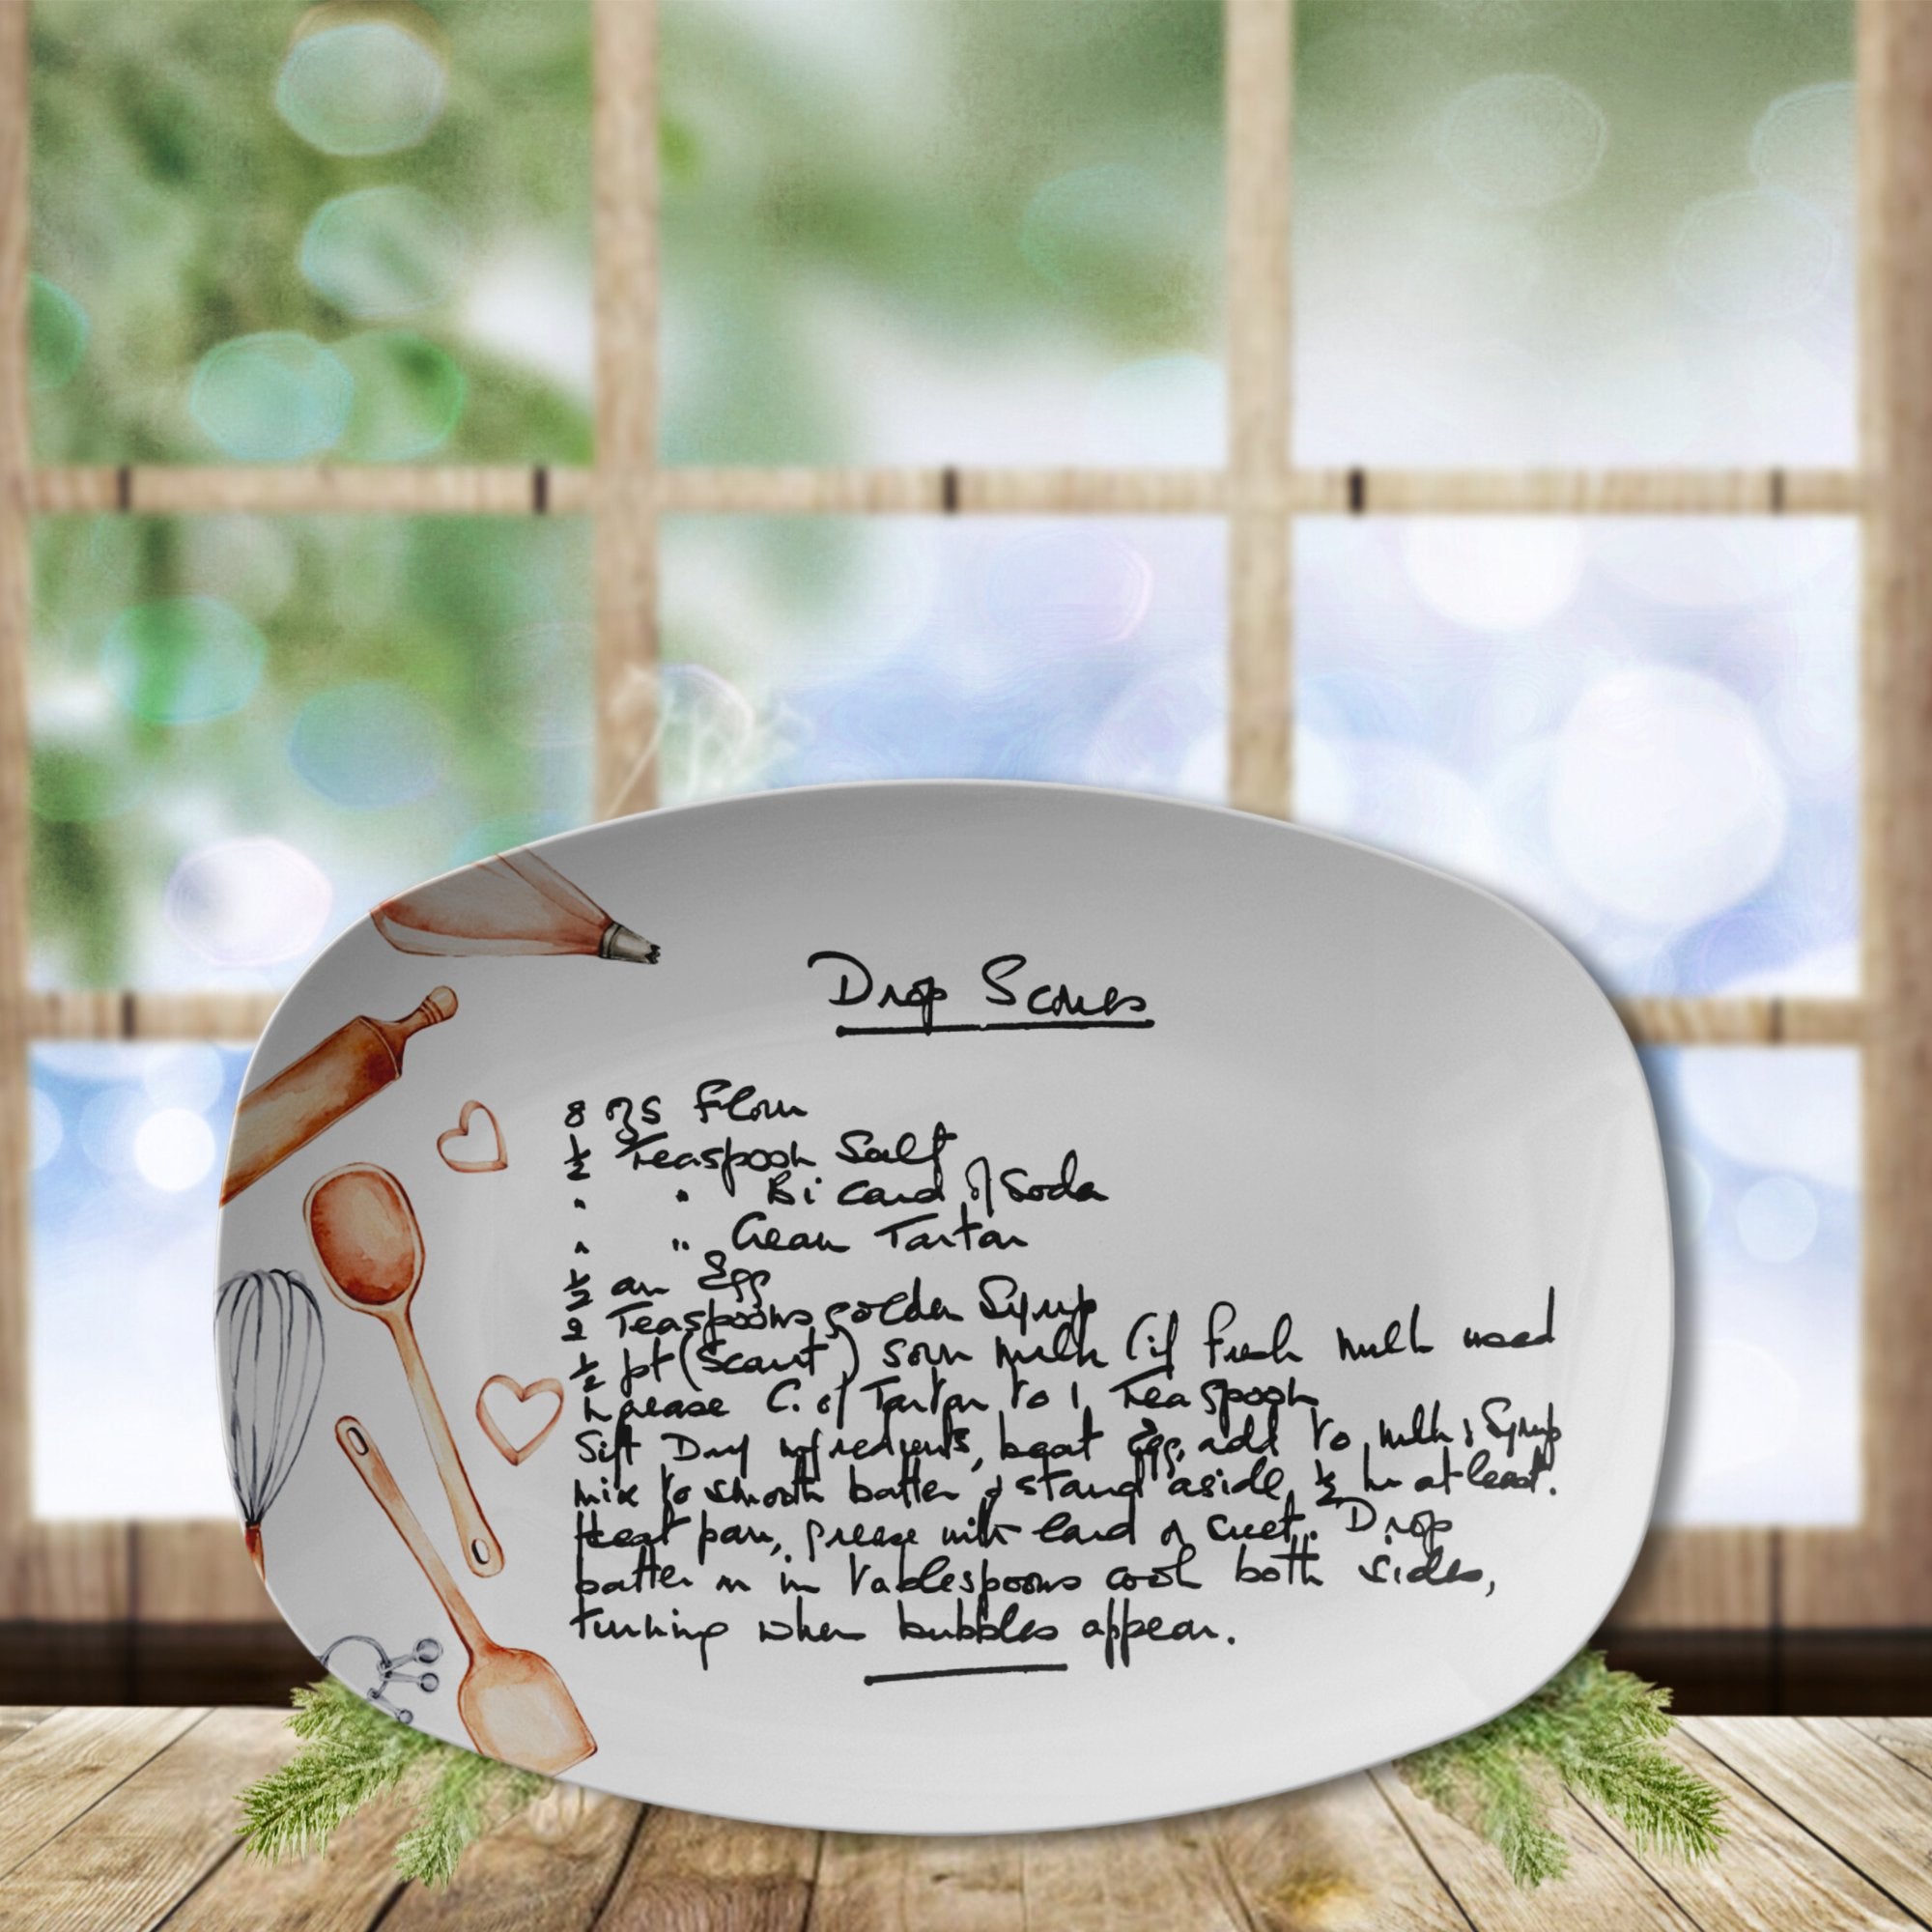 Drop Scones
8 ozs Flour
½ Teaspoon Salt
" " Bi Carb of Soda
" " Cream Tartar
½ an Egg
2 Teaspoons golden Syrup
½ pt (Scant) sour milk (if fresh milk used
increase C. of Tartar to 1 Teaspoon
Sift Dry ingredients, beat Egg, add to milk & Syrup
mix to smooth batter & stand aside ½ hr at least.
Heat pan, grease with lard or suet. Drop
batter in in tablespoons cook both sides,
turning when bubbles appear.